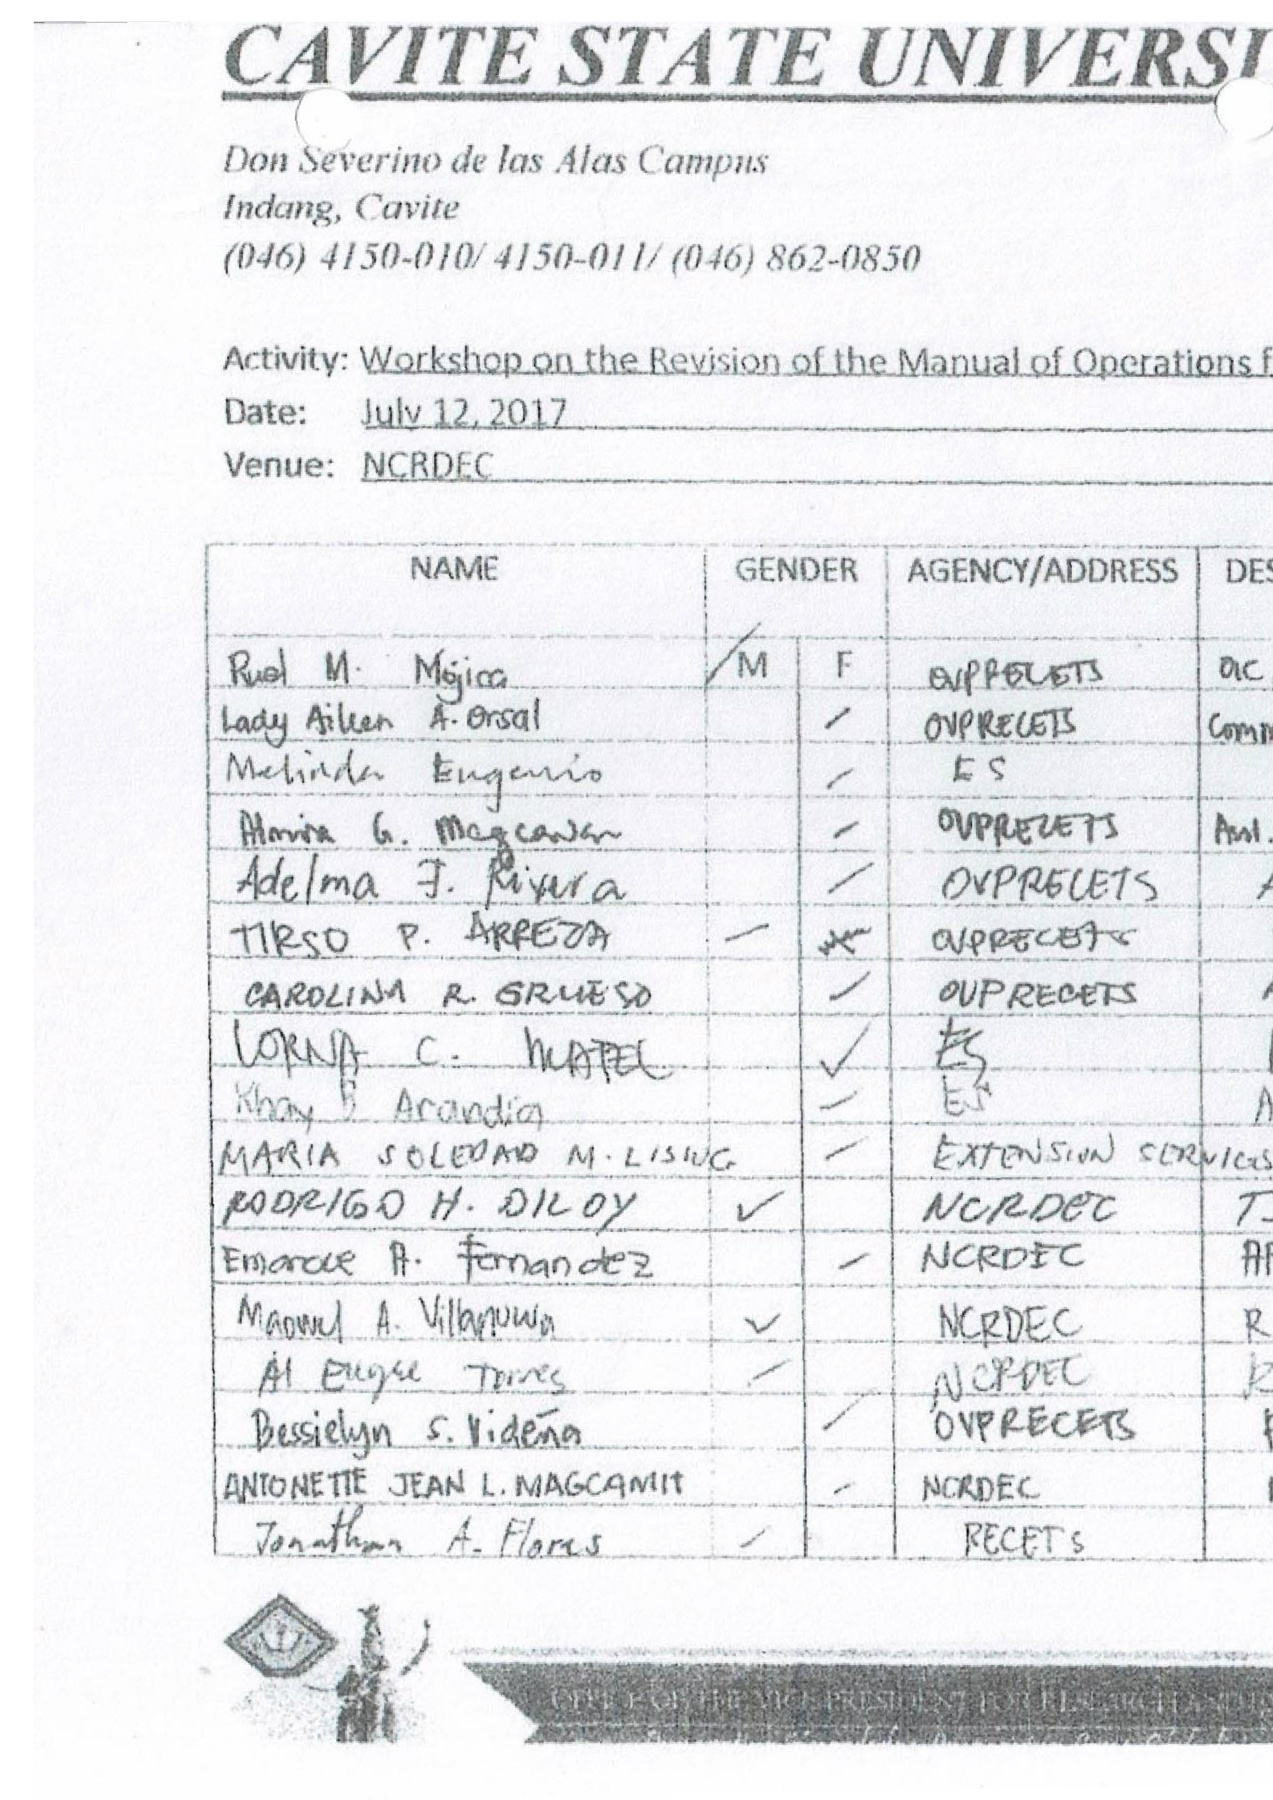 CAVITE STATE UNIVERSI
Don Severino de las Alas Campus
Indang, Cavite
(046) 4150-010/ 4150-011/ (046) 862-0850
Activity: Workshop on the Revision of the Manual of Operations f
Date: July 12, 2017
Venue: NCRDEC
NAME GENDER AGENCY/ADDRESS DES
Ruel M. Mojica M F OVPRECETS OIC
Lady Aileen A. Orsal OVPRECETS Comm
Melinda Eugenio ES
Almira G. Magcawas OVPRECETS Asst.
Adelma J. Rivera OVPRECETS A
TIRSO P. ARREZA OVPRECETS
CAROLINA R. GRUESO OVPRECETS A
LORNA C. MATEL ES
Khay B Arandia ES A
MARIA SOLEDAD M. LISING EXTENSION SERVICES
RODRIGO H. DILOY NCRDEC
Emarose A. Fernandez NCRDEC
A. Villanueva NCRDEC R
Al Eugene Torres NCRDEC R
Bessielyn S. Videña OVPRECETS
ANTONETTE JEAN L. MAGCAMIT NCRDEC
Jonathan A. Flores RECETS
OFFICE OF THE VICE PRESIDENT FOR RESEARCH